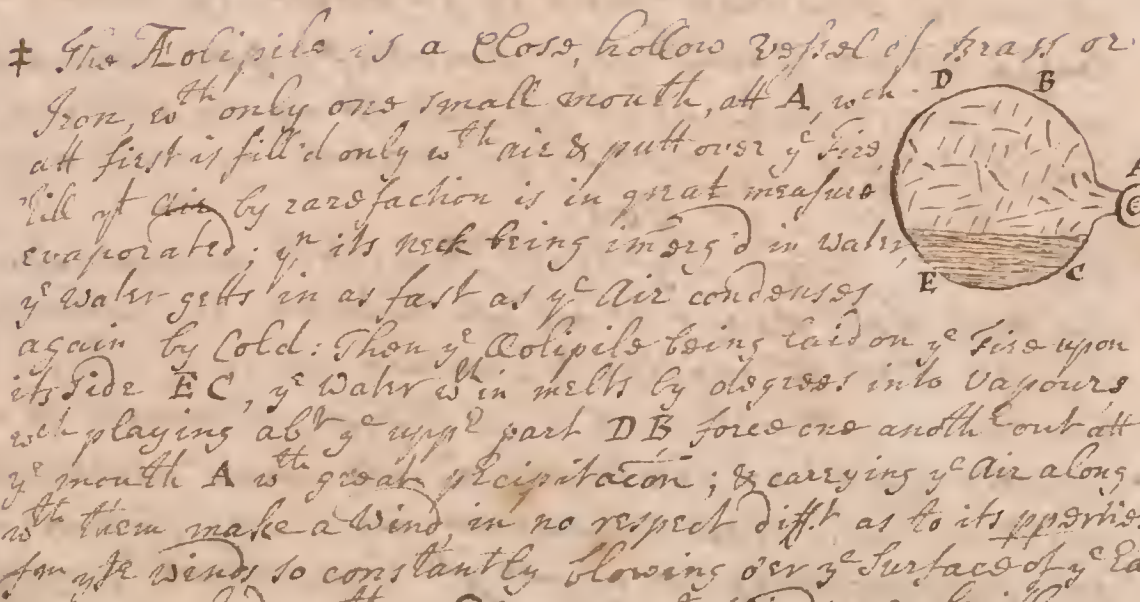 ‡ The Æolipile is a Close, hollow Vessel of Brass or
Iron, wth only one small mouth, att A, wch
att first is fill'd only wth air & putt over ye Fire
till yt air by rarefaction is in great measure
evaporated; yn its neck being imerg'd in Water,
ye Water getts in as fast as ye Air condenses
again by Cold: Then ye Æolipile being laid on ye Fire upon
its Side EC, ye Water wthin melts by degrees into Vapours
wch playing abt ye uppr part DB force one anothr out att
ye mouth A wth great pcipitacon; & carrying ye Air along
wth them make a Wind, in no respect difft as to its pperties
fm winds so constantly blowing o'er ye Surface of ye
D B
A
E C